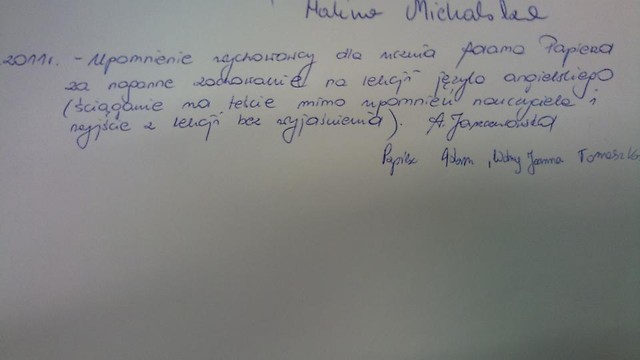 Malina Michalska
2011r. - Upomnienie wychowawcy dla ucznia Adama Papieża
za naganne zachowanie na lekcji języka angielskiego
(ściąganie na teście mimo upomnień nauczyciela i
wyjście z lekcji bez wyjaśnienia). A.
Papież Adam, Joanna Tomasz